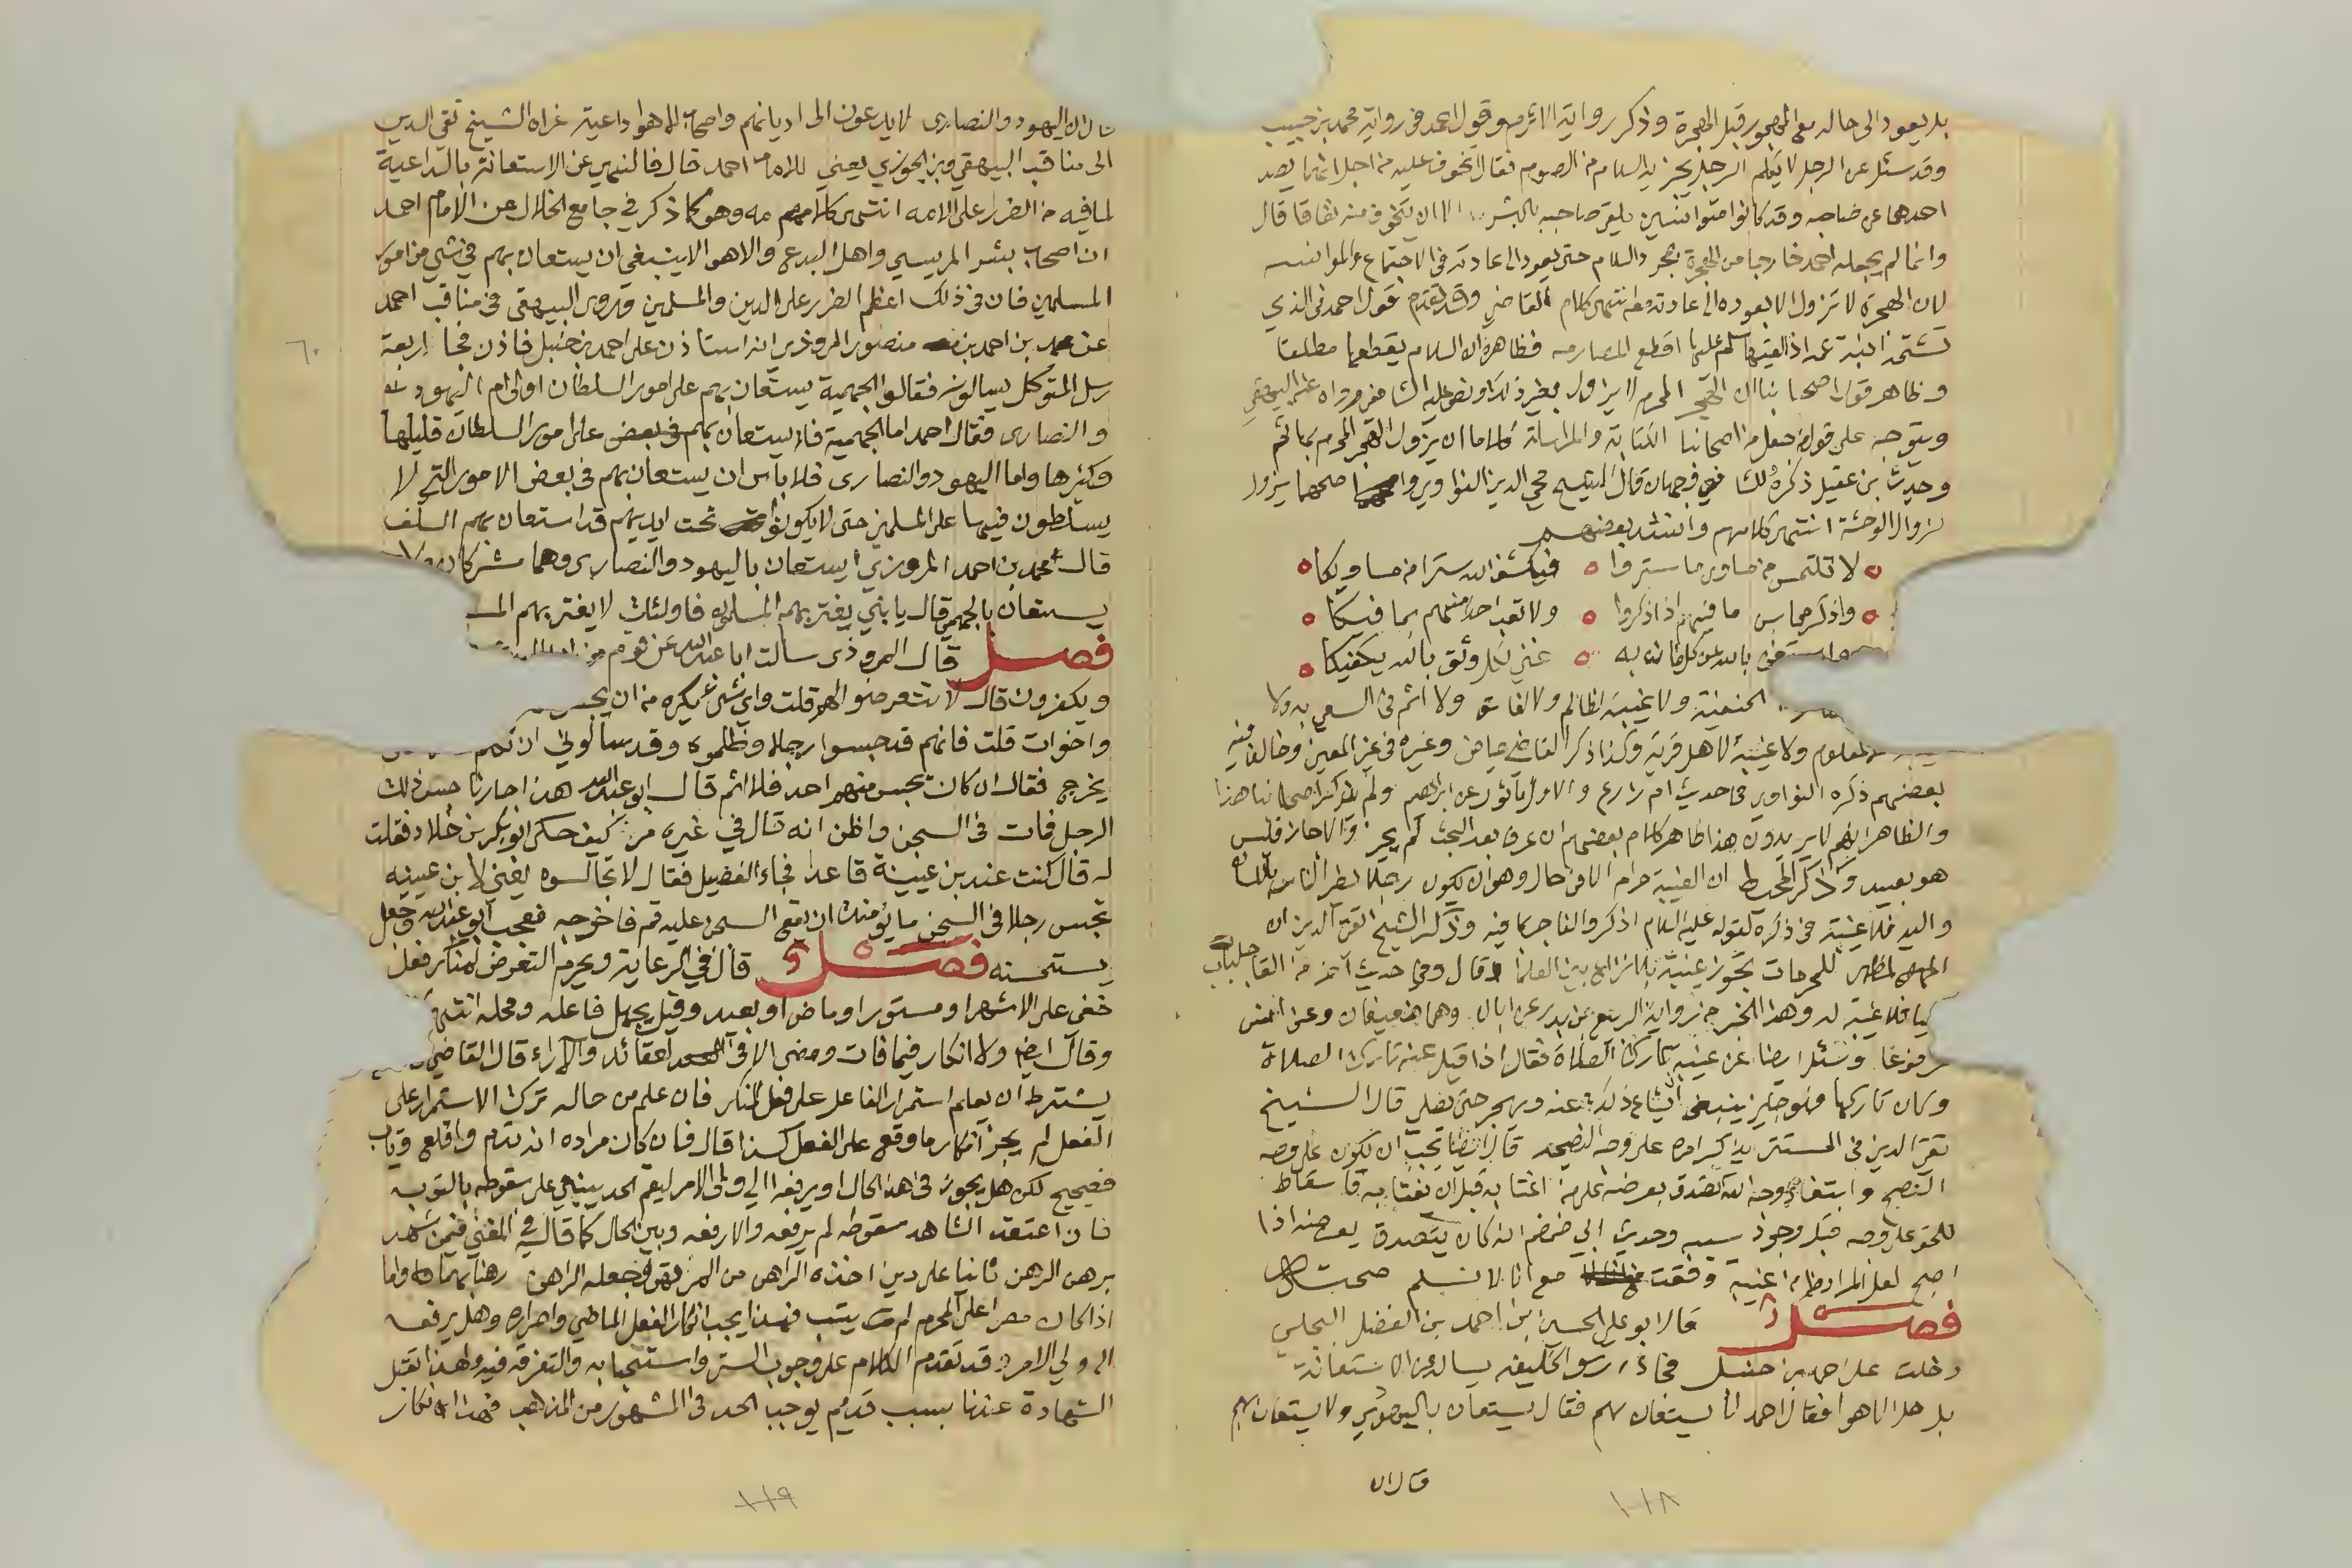 بل يعود الى حاله مع المهجور قبل الهجرة وذكر رواية الاثرم وقول احمد في رواية محمد بن حبيب
وقد سئل عن الرجل لا يكلم الرجل يجزيه السلام من الصرم فقال اتخوف عليه من اجل انهما يصد
احدهما عن صاحبه وقد كانوا متوانسين يلق صاحبه بالبشر الا ان يتخوف منه نفاقا قال
وانما لم يجعله احمد خارجا من الهجرة بمجرد السلام حتى يعود الى عادته في الاجتماع والموانسه
لان الهجرة لا تزول الا بعوده الى عادته معه انتهى كلام القاضي وقد تقدم قول احمد في الذي
تشتمه ابنة عمه اذا لقيها سلم عليها اقطع المصارمه فظاهره ان السلام يقطعها مطلقا
وظاهر قول اصحابنا ان الهجر المحرم لا يزول بغير ذلك ونص عليه الشافعي ورواه عنه البيهقي
ويتوجه على قول من جعل من اصحابنا الكتابة والمراسلة كلاما ان يزول الهجر المحرم بها ثم
وجدت بن عقيل ذكره للشافعي وجهان قال الشيخ محي الدين النواوي واصحهما يزول
لزوال الوحشة انتهى كلامهم وانشد بعضهم
لا تلتمس من مساوي ما ستروا فيكشف الله سترا من مساويكا
واذكر محاسن ما فيهم اذا ذكروا ولا تعب احدا منهم بما فيكا
واستغن بالله عن كل فان به غنى لكل وثق بالله يكفيكا
الحنفية ولا غيبة لظالم ولا لفاسق ولا اثم في السعي به ولا
لمعلوم ولا غيبة لاهل قرية وكذا ذكر القاضي عياض وغيره في غير المعين وخالف فيه
بعضهم ذكره النواوي في حديث ام زرع والاول ماثور عن ابراهيم ولم يذكر اصحابنا هذا
والظاهر انهم لا يريدون هذا ظاهر كلام بعضهم ان عرف بعد البحث لم يجز والا جاز وليس
هو ببعيد وذكر في المحيط ان الغيبة حرام الا في حال وهو ان يكون رجلا يضر الناس باللسان
واليد فلا غيبة في ذكره لقوله عليه السلام اذكروا الفاجر بما فيه وذكر الشيخ تقي الدين ان
المظهر للمحرمات تجوز غيبته بلا نزاع بين العلماء قال وفي حديث آخر من القى جلباب
الحيا فلا غيبة له وهذا الخبر من رواية الربيع بن بدر عن ابان وهما ضعيفان وعن انس
مرفوعا وسئل ايضا عن غيبة تارك الصلاة فقال اذا قيل عنه تارك الصلاة
وكان تاركها فهو جايز ينبغي ان يشاع ذلك عنه ويهجر حتى يصلي قال الشيخ
تقي الدين في المستتر يذكر امره على وجه النصيحة قال ايضا يجب ان يكون على وجه
النصح وابتغاء وجه الله تصدق بعرضه على من اغتابه قبل ان يغتابه فاسقاط
للحق على وجه قبل وجود سببه وحديث ابي ضمضم انه كان يتصدق بعرضه اذا
اصبح لعل المراد ما من غيبة وقعت مع انا لا نسلم صحته
فصل قال ابو علي الحسين بن احمد بن الفضل البجلي
دخلت على احمد بن حنبل فجاءه رسول الخليفة يساله عن الاستعانة
باهل الاهوا فقال احمد لا يستعان بهم فقال يستعان باليهود ولا يستعان بهم
قال ان
قال ان اليهود والنصارى لا يدعون الى اديانهم واصحاب الاهوا داعية عزاه الشيخ تقي الدين
الى مناقب البيهقي وبن الجوزي يعني للامام احمد قال فالنهي عن الاستعانة بالداعية
لما فيه من الضرر على الامه انتهى كلامه وهو كما ذكر في جامع الخلال عن الامام احمد
ان اصحاب بشر المريسي واهل البدع والاهوا لا ينبغي ان يستعان بهم في شي من امور
المسلمين فان في ذلك اعظم الضرر على الدين والمسلمين وروى البيهقي في مناقب احمد
عن محمد بن احمد بن منصور المروذي انه استاذن على احمد بن حنبل فاذن فجا اربعة
رسل المتوكل يسالونه فقالوا الجهمية يستعان بهم على امور السلطان اولى ام اليهود
والنصارى فقال احمد اما الجهمية فلا يستعان بهم في بعض على امور السلطان قليلها
وكثيرها واما اليهود والنصارى فلا باس ان يستعان بهم في بعض الامور التي لا
يسلطون فيها على المسلمين حتى لا يكونوا تحت ايديهم قد استعان بهم السلف
قال محمد بن احمد المروزي ايستعان باليهود والنصارى وهما مشركان ولا
يستعان بالجهمي قال يا بني يغتر بهم المسلمون فاولئك لا يغتر بهم المـ
فصل قال المروذي سالت ابا عبد الله عن قوم من
ويكفرون قال لا تتعرضوا لهم قلت واي شي تكره من ان يحبس
واخوات قلت فانهم قد حبسوا رجلا وظلموه وقد سالوني ان
يخرج فقال ان كان يحبس منهم احد فلا اثم قال ابو عبد الله هذا جارنا حبس ذلك
الرجل فمات في السجن واظن انه قال في غير مرة كيف حكى ابو بكر بن خلاد فقلت
له قال كنت عند بن عيينة قاعدا فجاء الفضيل فقال لا تجالسوه يعني لابن عيينه
تحبس رجلا في السجن ما يؤمنك ان يقع السجن عليه قم فاخرجه فعجب ابو عبد الله وجعل
يستحسنه فصل قال في الرعاية ويحرم التعرض لمنكر فعل
خفي على الاشهر او مستور او ماض او بعيد وقيل يجهل فاعله ومحله انتهى
وقال ايضا ولا انكار فيما فات ومضى الا في العقائد والآراء قال القاضي
يشترط ان يعلم استمرار الفاعل على فعل المنكر فان علم من حاله ترك الاستمرار على
الفعل لم يجز انكار ما وقع على الفعل كذا قال فان كان مراده انه ندم واقلع وتاب
فصحيح لكن هل يجوز في هذا الحال او يرفعه الى ولي الامر ليقيم الحد ينبني على سقوطه بالتوبه
فان اعتقد الشاهد سقوطه لم يرفعه والا رفعه وبين الحال كما قاله في المغني فيمن شهد
برهن الرهن ثانيا على دين اخذه الراهن من المرتهن وجعله الراهن رهنا بهما واما
اذا كان مصرا على المحرم لم يتب فهذا يجب انكار الفعل الماضي واصراره وهل يرفعه
الى ولي الامر قد تقدم الكلام على وجوب الستر واستحبابه والتفرقه فيه ولهذا تقبل
الشهادة عندنا بسبب قديم يوجب الحد في المشهور من المذهب فهذا انكار
٦٠
١١٨
١١٩